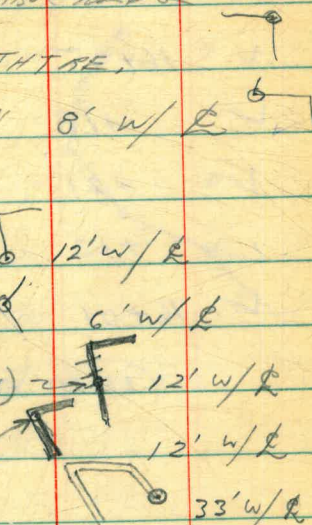 THTRE.
8' W/ ℄
12' W/ ℄
6' W/ ℄
12' W/ ℄
12' W/ ℄
33' W/ ℄